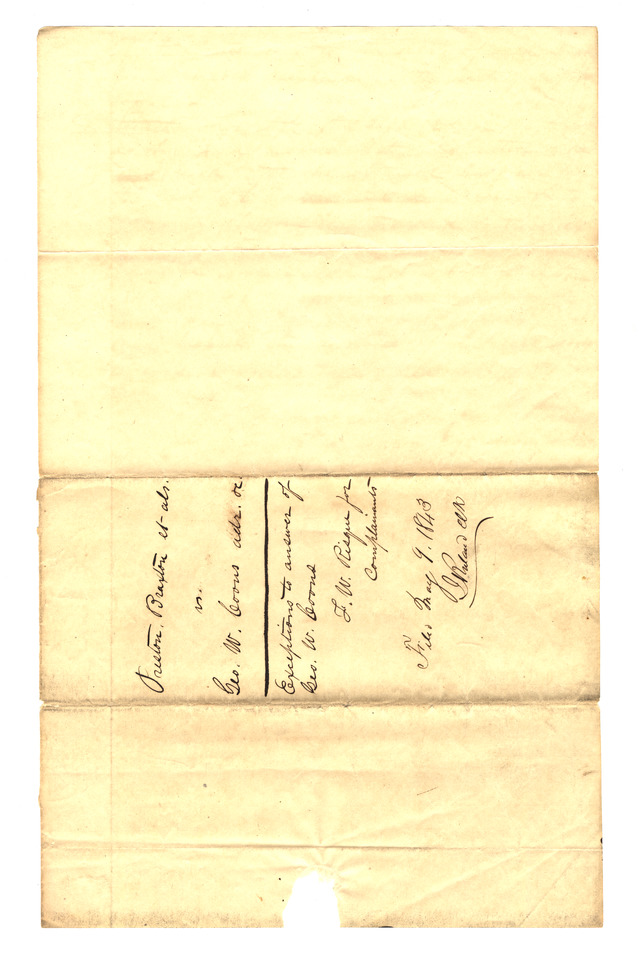 Preston, Braxton et als.
vs.
Geo. W. Coons adr. &c
Exceptions to answer of
Geo. W. Coons
F. W. Risque for
Complainants
Filed May 9. 1843
J Ruland clk